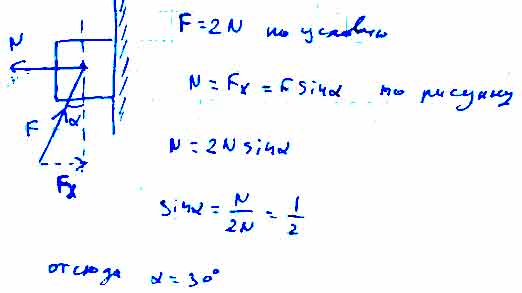 F = 2N по условию
N
N = Fx = F sinα по рисунку
F
α
N = 2N sinα
Fx
sinα = N/2N = 1/2
отсюда α = 30°